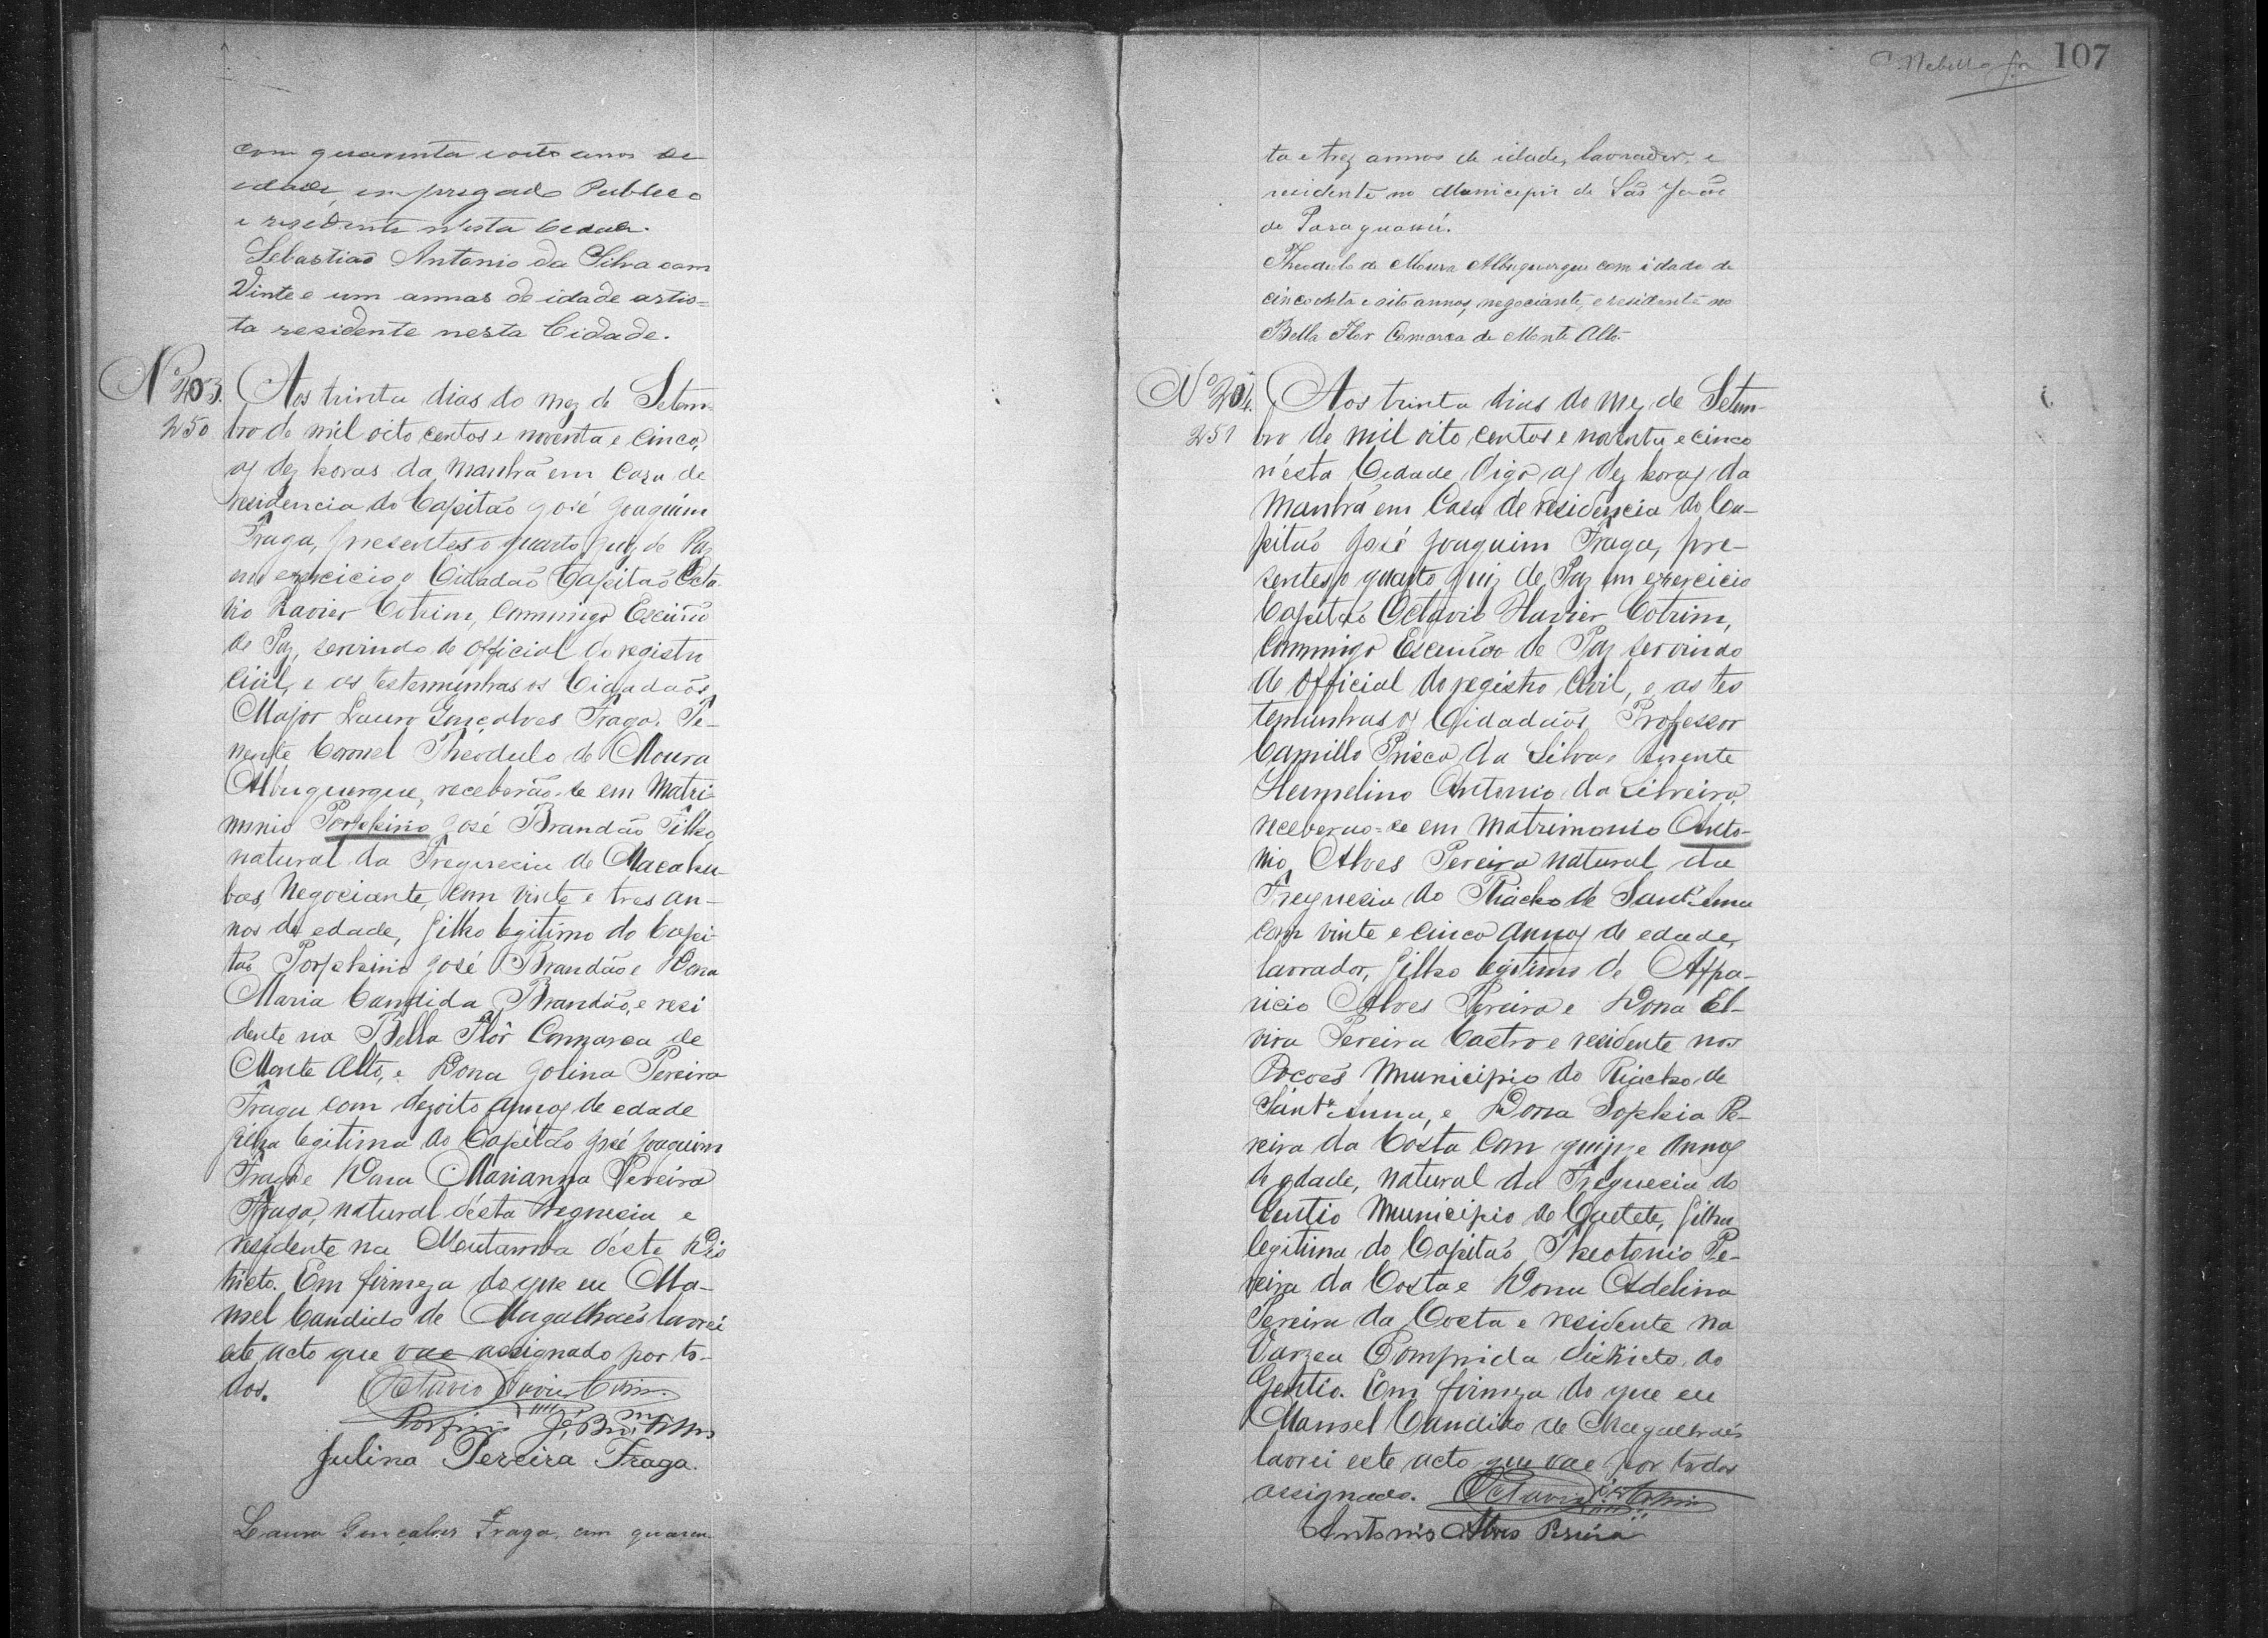 com quarenta e oito annos de
edade, empregado Publico
e residente n'esta Cidade.
Sebastião Antonio da Silva com
Vinte e um annos de idade artis-
ta residente nesta Cidade.
Nº 203.
250
Aos trinta dias do mez de Setem-
bro de mil oito centos e noventa e cinco,
as dez horas da manhã em Caza de
residencia do Capitão José Joaquim
Fraga, presentes o quarto Juiz de Paz
em exercicio o Cidadão Capitão Octa-
vio Xavier Cotrim, Commigo Escrivão
de Paz, servindo de official do registro
Civil, e as testeminhas os Cidadãos
Major Lauro Gonçalves Fraga. Te-
nente Coronel Theodulo de Moura
Albuquerque, receberão-se em Matri-
monio Porphirio José Brandão Filho
natural da Freguesia de Macahu-
bas, Negociante, com vinte e tres an-
nos de edade, filho legitimo do Capi-
tão Porphirio José Brandão e Dona
Maria Candida Brandão, e resi
dente na Bella Flôr Comarca de
Monte Alto, e Dona Jolina Pereira
Fraga com dezoito annos de edade
filha legitima do Capitão José Joaquim
Fraga e Dona Marianna Pereira
Fraga, natural désta Freguesia e
residente na déste Dis
tricto. Em firmeza do que eu Ma-
noel Candido de Magalhães lavrei
este acto que vae assignado por to-
dos. Octavio Xavier Cotrim.
Porfirio Jé. Filho
Julina Pereira Fraga.
Lauro Gonçalves Fraga, com quaren
107
ta e trez annos de idade, lavrador, e
residente no Municipio de São João
do Paraguassú.
Theodulo de Moura Albuquerque com idade de
cincoenta e oito annos, negociante, e residente no
Bella Flor Comarca de Monte Alto.
Nº 204.
251
Aos trinta dias do mez de Setem-
bro de mil oito centos e noventa e cinco
n'ésta Cidade digo as dez horas da
manhã em Casa de residencia do Ca-
pitão José Joaquim Fraga, pre-
sentes o quarto Juiz de Paz em exercicio
Capitão Octavio Xavier Cotrim,
Commigo Escrivão de Paz servindo
de official do registro Civil, e as tes
teminhas os Cidadãos Professor
Camillo Prisco da Silva e Tenente
Hermelino Antonio da Silveira,
receberao-se em Matrimonio Anto-
nio Alves Pereira natural da
Freguesia do Riacho de Sant'Anna
com vinte e cinco annos de edade,
lavrador, filho legitimo de Appa-
ricio Alves Pereira e Dona El-
vira Pereira Castro e residente nos
Poções Municipio do Riacho de
Sant'Anna, e Dona Sophia Pe-
reira da Costa com quinze annos
de edade, natural da Freguesia do
Gentio Municipio de Caeteté, filha
legitima do Capitão Theotonio Pe-
reira da Costa e Dona Adelina
Pereira da Costa e residente na
Varzea Comprida, districto, do
Gentio. Em firmeza do que eu
Manoel Candido de Magalhães
lavrei este acto que vae por todos
assignado. Octavio Xavier Cotrim
Antonio Alves Pereira